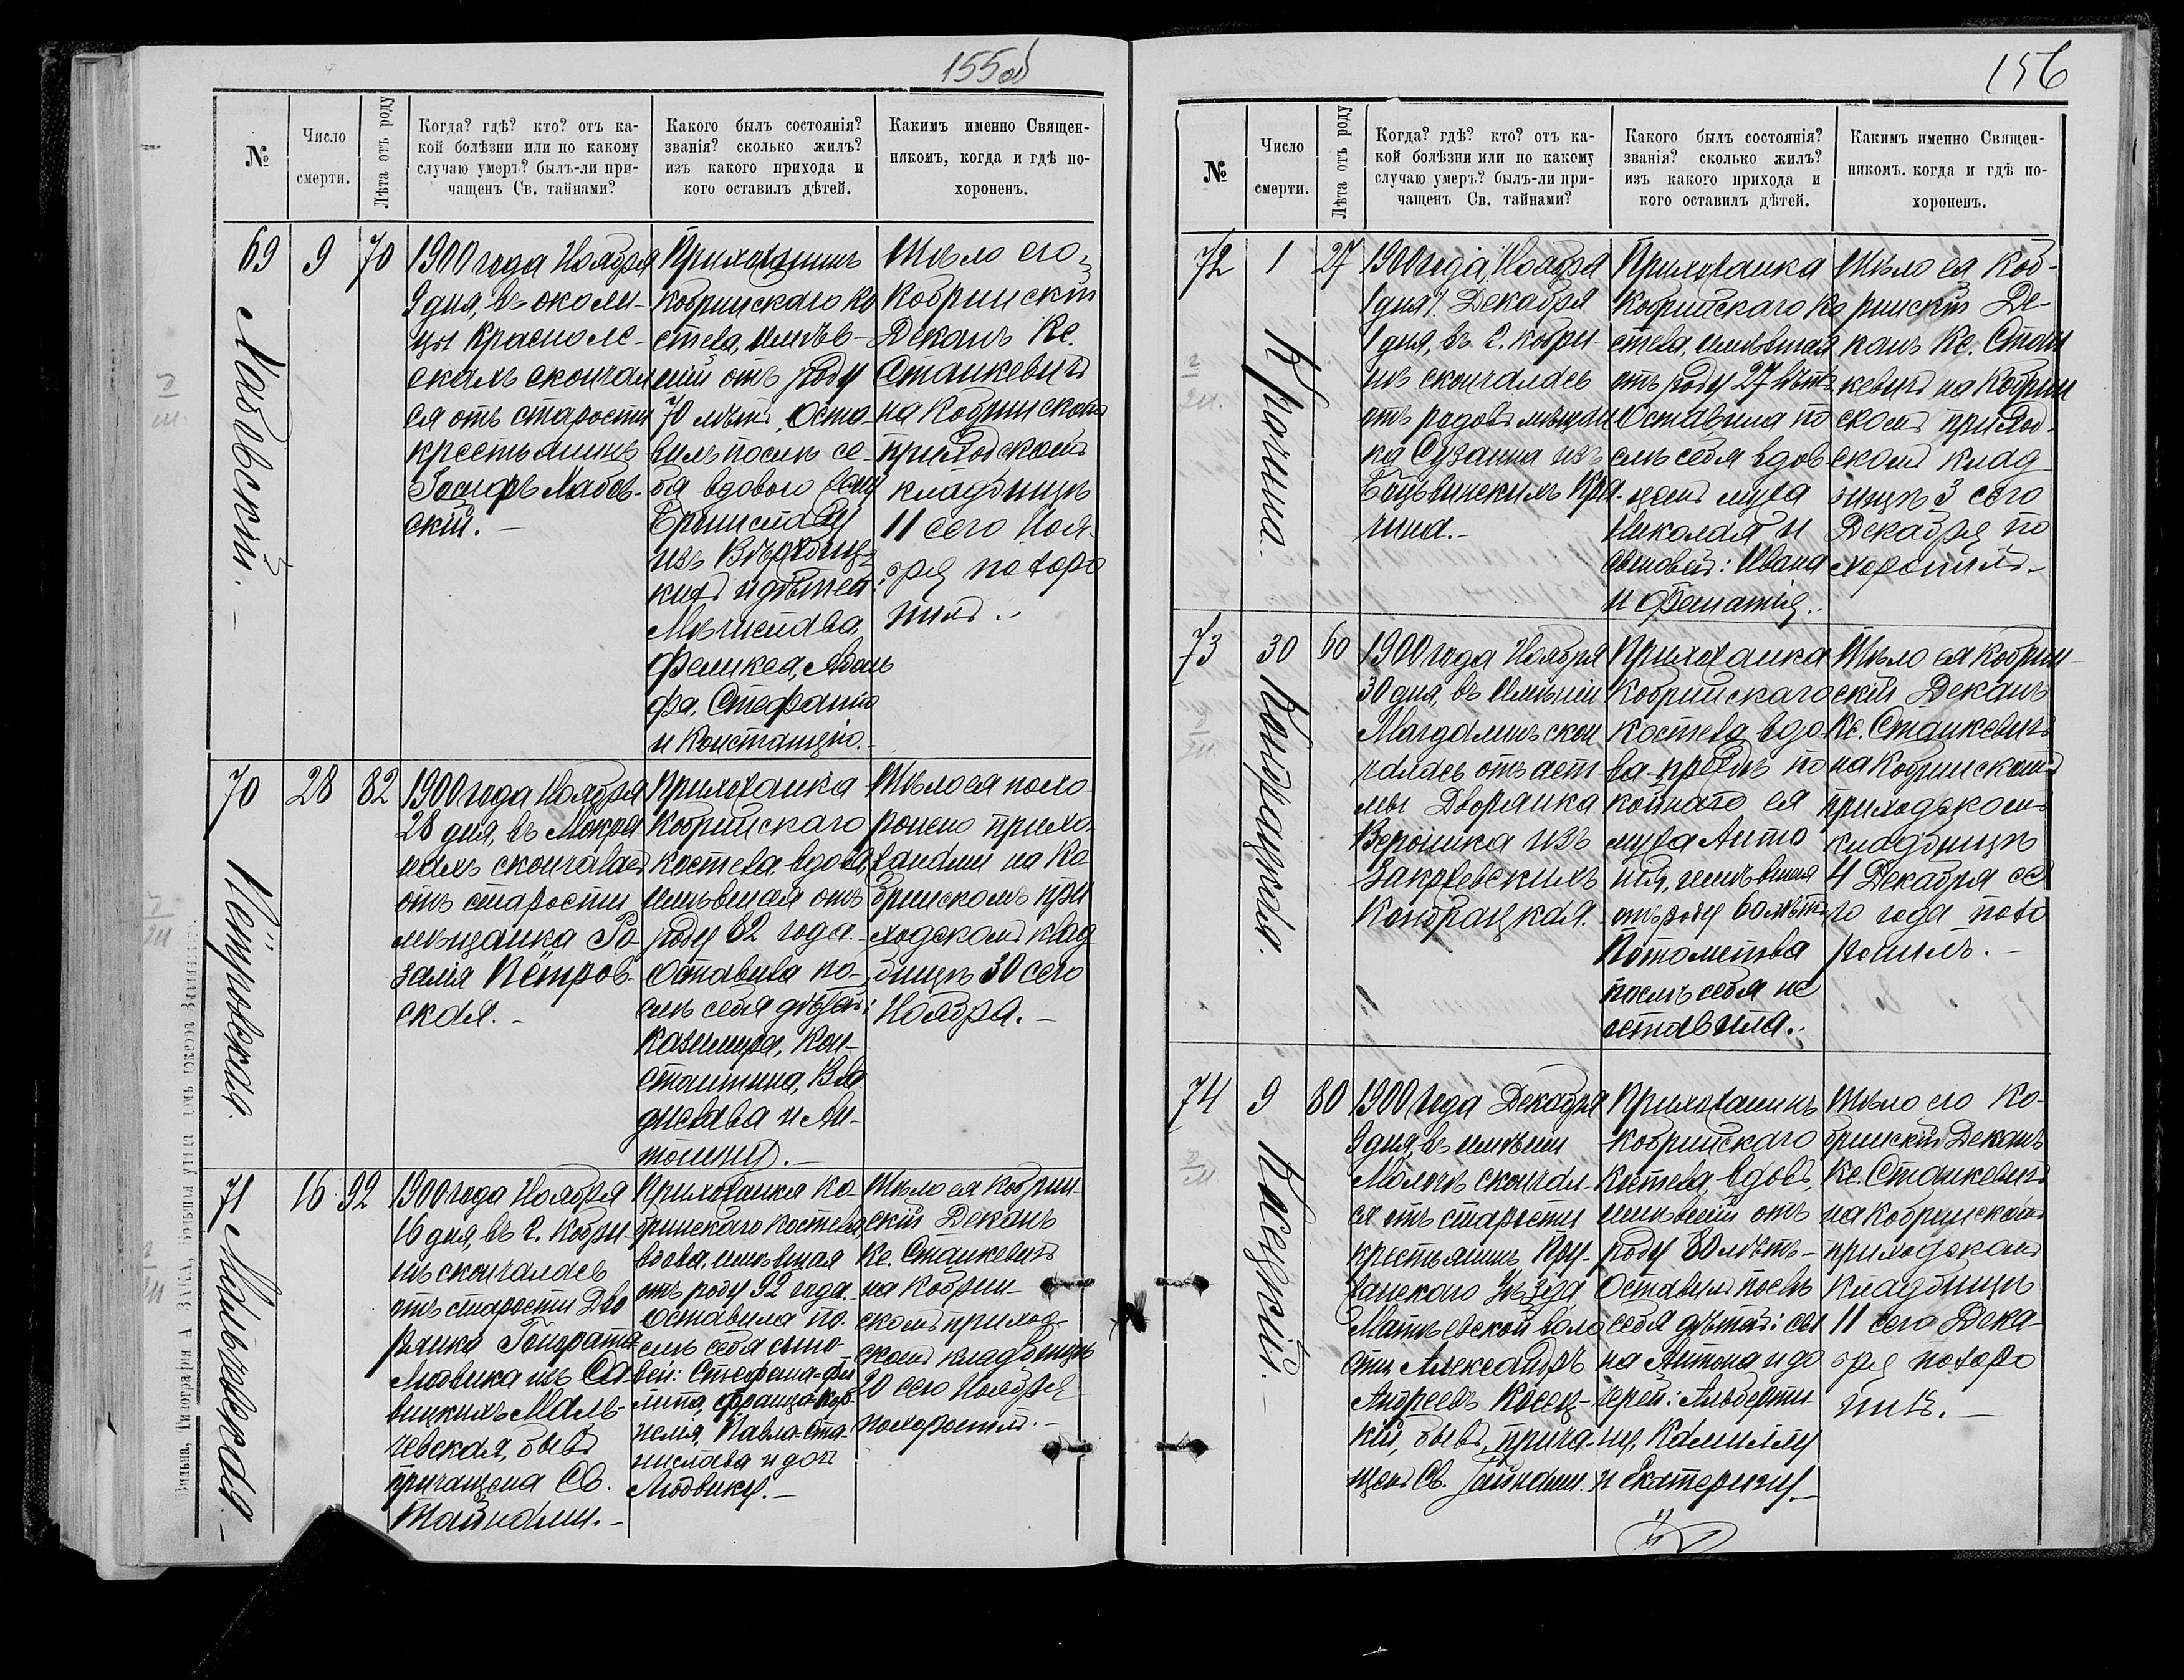 155об
№
Число
смерти.
Лѣта отъ роду
Когда? гдѣ? кто? отъ ка-
кой болѣзни или по какому
случаю умеръ? былъ-ли при-
чащенъ Св. тайнами?
Какого былъ состоянія?
званія? сколько жилъ?
изъ какого прихода и
кого оставилъ дѣтей.
Какимъ именно Священ-
никомъ, когда и гдѣ по-
хороненъ.
69
9
70
1900 года Ноября
9 дня, въ околи-
цы Красноле-
скомъ скончал
ся отъ старости
крестьянинъ
Госифъ Хабов-
скій.-
Прихожанинъ
Кобринскаго Ко
стела, имѣв-
шій отъ роду
70 лѣтъ. Оста-
вилъ послѣ се-
бя вдовою жену
Брониславу
изъ
кихъ и дѣтей:
Мѣчислава,
Феликса, Адоль
фа, Стефанію
и Констанцію.-
Тѣло его
Кобринскій
Деканъ Кс.
Станкевичъ
на Кобринскомъ
приходскомъ
кладбищѣ
11 сего Ноя-
бря похоро
нилъ.-
Хабовскій.-
70
28
82
1900 года Ноября
28 дня, въ Мокра
нахъ скончалась
отъ старости
мѣщанка Ро-
залія Пётров-
ская.-
Прихожанка
Кобринскаго
костела вдова,
имѣвшая отъ
роду 82 года.
Оставила по-
слѣ себя дѣтей:
Казимира, Кон-
стантина, Вла
дислава и Ан-
тонину.-
Тѣло ея похо
ронено прихо-
жанами на Ко
бринскомъ при
ходскомъ клад
бищѣ 30 сего
Ноября.-
Пётровская.
71
16
92
1900 года Ноября
16 дня, въ г. Кобри-
нѣ скончалась
отъ старости Дво
рянка Гонората
Людвика изъ Са
вицкихъ Маль-
чевская, бывъ
причащена Св.
Тайнами.-
Прихожанка Ко-
бринскаго костела,
вдова, имѣвшая
отъ роду 92 года.
Оставила по-
слѣ себя сыно-
вей: Стефана-Фи
липа, Франца-Кор-
нелія, Павла-Ста-
нислава и дочь
Людвику.-
Тѣло ея Кобрин-
скій Деканъ
Кс. Станкевичъ
на Кобрин-
скомъ приход-
скомъ кладбищѣ
20 сего Ноября
похоронилъ.-
Мальчевская.-
Вильна, Типографія А
156
№
Число
смерти.
Лѣта отъ роду
Когда? гдѣ? кто? отъ ка-
кой болѣзни или по какому
случаю умеръ? былъ-ли при-
чащенъ Св. тайнами?
Какого былъ состоянія?
званія? сколько жилъ?
изъ какого прихода и
кого оставилъ дѣтей.
Какимъ именно Священ-
никомъ. когда и гдѣ по-
хороненъ.
72
1
27
1900 года, Ноября
1 дня/. Декабря
1 дня, въ г. Кобри-
нѣ скончалась
отъ родовъ мѣщан
ка Сузанна изъ
Кра-
чина.-
Прихожанка
Кобринскаго ко
стела, имѣвшая
отъ роду 27 лѣтъ
Оставила по
слѣ себя вдов
цомъ мужа
Николая и
сыновей: Ивана
и Игнатія.-
Тѣло ея Коб-
ринскій Де-
канъ Кс. Стан
кевичъ на Кобрин
скомъ приход-
скомъ клад-
бищѣ 3 сего
Декабря по
хоронилъ.-
Крачина.
73
30
60
1900 года Ноября
30 дня, въ имѣніи
Магдалинъ скон
чалась отъ аст
мы Дворянка
Вероника изъ
Закржевскихъ
Кондрацкая.
Прихожанка
Кобринскаго
костела вдо
ва по
койнаго ея
мужа Анто
нія, имѣвшая
отъ роду 60 лѣтъ.
Потомства
послѣ себя не
оставила.-
Тѣло ея Кобрин-
скій Деканъ
Кс. Станкевичъ
на Кобринскомъ
приходскомъ
кладбищѣ
4 Декабря се
го года похо
ронилъ.-
Кондрацкая.
74
9
80
1900 года Декабря
9 дня, въ имѣніи
скончал-
ся отъ старости
крестьянинъ Пру-
жанскаго уѣзда
Матвѣевской воло
сти Александръ
Андреевъ Косец-
кій, бывъ прича-
щенъ Св. Тайнами.
Прихожанинъ
Кобринскаго
Костела, вдовъ,
имѣвшій отъ
роду 80 лѣтъ.-
Оставилъ послѣ
себя дѣтей: сы
на Антона и до
черей: Альберти-
ну, Камиллу
и Екатерину.-
Тѣло его Ко-
бринскій Деканъ
Кс. Станкевичъ
на Кобринскомъ
приходскомъ
кладбищѣ
11 сего Дека-
бря похоро
нилъ.-
Косецкій.-